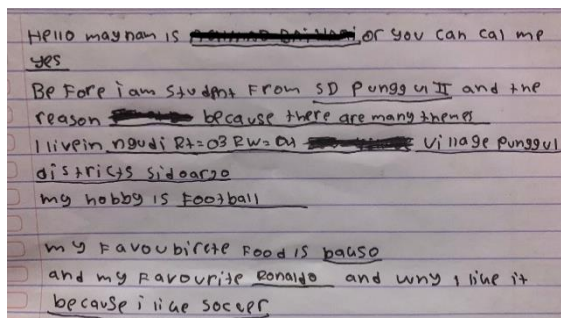 Hello may nam is or you can cal me
yes
Before i am student From SD Punggul II and the
reason because there are many themes
I livein ngudi Rt=03 RW=04 village punggul
districts sidoarzo
my hobby is Football
my Favoubirete Food is bakso
and my Favourite Ronaldo and why i like it
because i like soccer